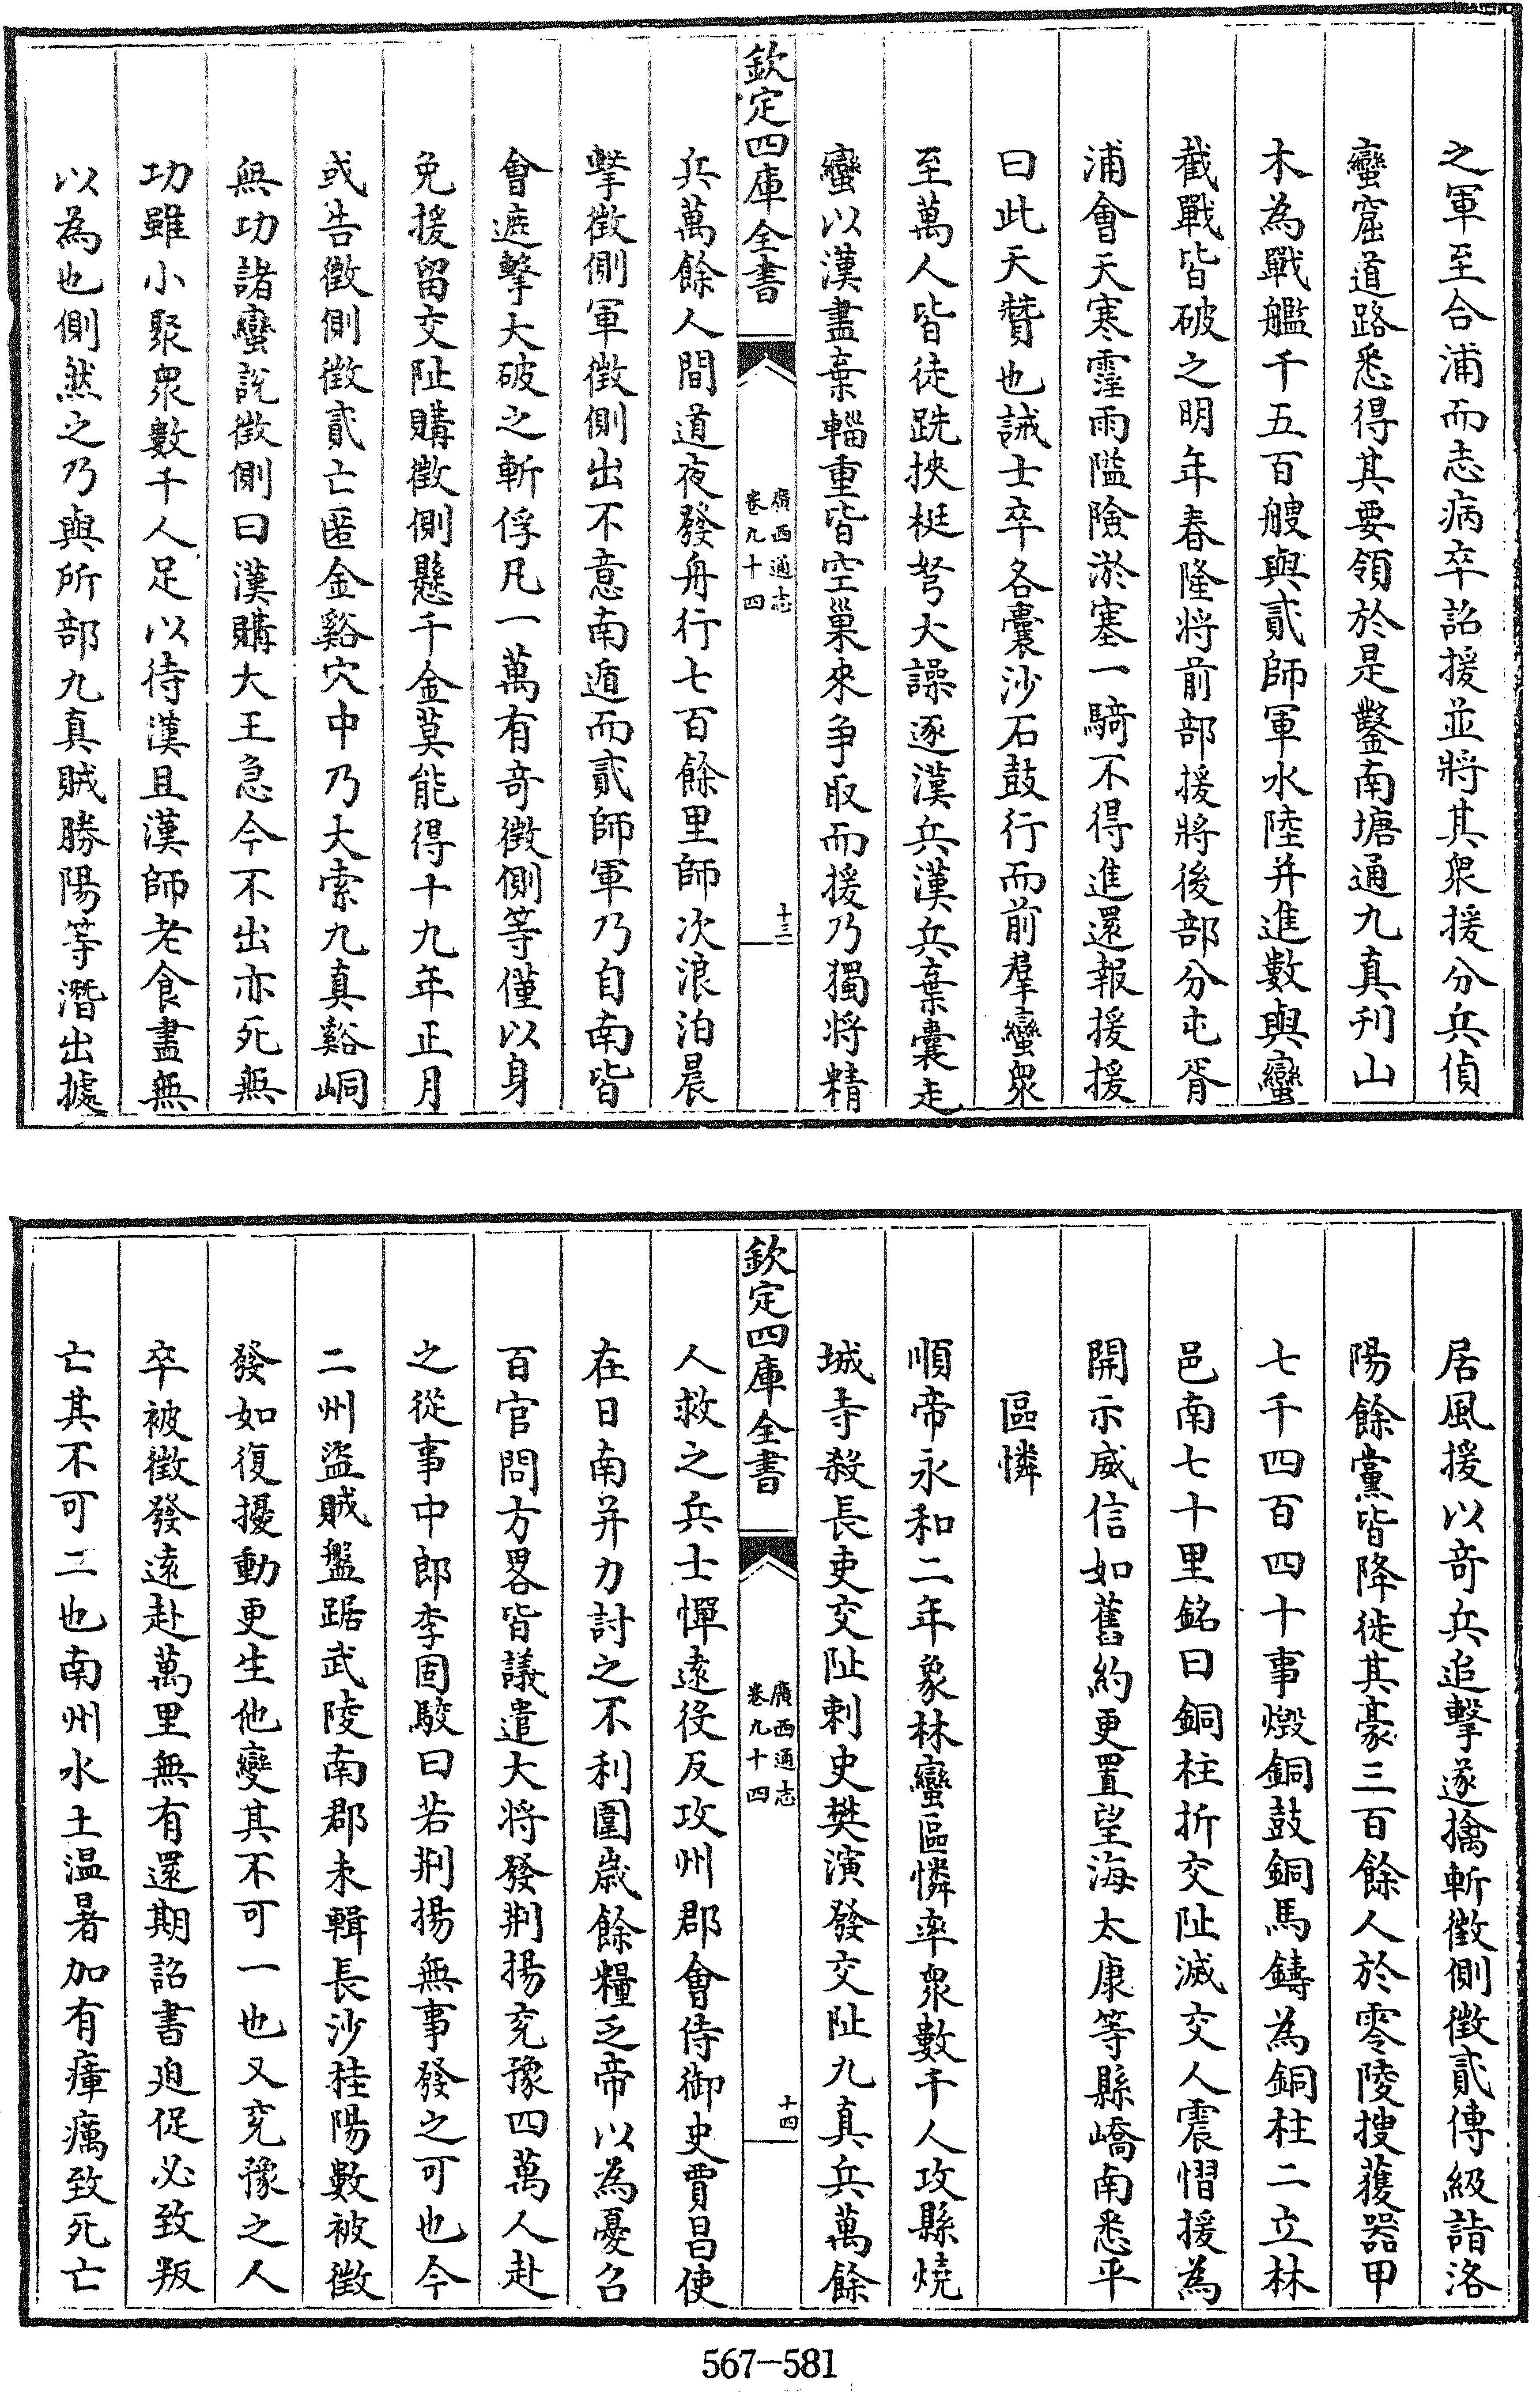 之軍至合浦而志病卒詔援並將其衆援分兵偵
蠻窟道路悉得其要領於是鑿南塘通九真刋山
木為戰艦千五百艘與貳師軍水陸并進數與蠻
截戰皆破之明年春隆將前部援將後部分屯胥
浦會天寒霪雨隘險淤塞一騎不得進還報援援
曰此天贊也誡士卒各囊沙石鼓行而前羣蠻衆
至萬人皆徒跣挾梃弩大譟逐漢兵漢兵棄囊走
蠻以漢盡棄輜重皆空巢來爭取而援乃獨將精
欽定四庫全書
廣西通志
卷九十四
十三
兵萬餘人間道夜發舟行七百餘里師次浪泊晨
擊徵側軍徵側出不意南遁而貳師軍乃自南皆
會遮擊大破之斬俘凡一萬有竒徵側等僅以身
免援留交阯購徵側懸千金莫能得十九年正月
或告徵側徵貳亡匿金谿穴中乃大索九真谿峒
無功諸蠻說徵側曰漢購大王急今不出亦死無
功雖小聚衆數千人足以待漢且漢師老食盡無
以為也側然之乃與所部九真賊勝陽等潛出據
居風援以竒兵追擊遂擒斬徵側徵貳傳級詣洛
陽餘黨皆降徙其豪三百餘人於零陵搜獲器甲
七千四百四十事燬銅鼓銅馬鑄為銅柱二立林
邑南七十里銘曰銅柱折交阯滅交人震慴援為
開示威信如舊約更置望海太康等縣嶠南悉平
區憐
順帝永和二年象林蠻區憐率衆數千人攻縣燒
城寺殺長吏交阯刺史樊演發交阯九真兵萬餘
欽定四庫全書
廣西通志
卷九十四
十四
人救之兵士憚遠役反攻州郡會侍御史賈昌使
在日南并力討之不利圍歲餘糧乏帝以為憂召
百官問方畧皆議遣大將發荆揚兖豫四萬人赴
之從事中郎李固駮曰若荆揚無事發之可也今
二州盜賊盤踞武陵南郡未輯長沙桂陽數被徵
發如復擾動更生他變其不可一也又兖豫之人
卒被徵發遠赴萬里無有還期詔書廹促必致叛
亡其不可二也南州水土温暑加有瘴癘致死亡
567-581